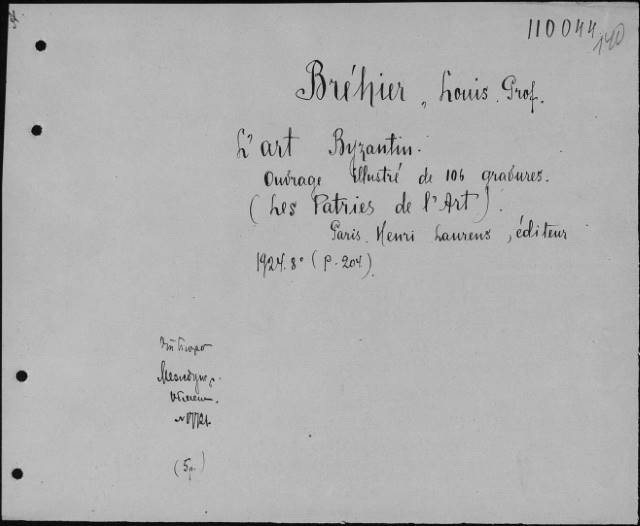 110044
140
Bréhier, Louis. Prof.
L'art Byzantin.
Ouvrage Illustré de 106 grabures.
(Les Patries de l'Art).
Paris. Henri Laurens, éditeur
1924. 8° (p. 204).
(5р)